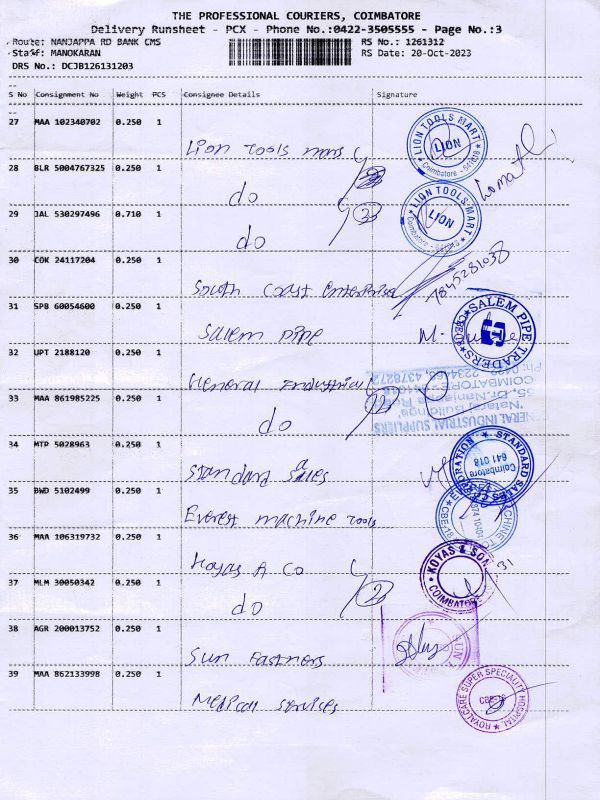 THE PROFESSIONAL COURIERS, COIMBATORE
Delivery Runsheet - PCX - Phone No.:0422-3505555 - Page No.:3
Route: NANJAPPA RD BANK CMS RS No.: 1261312
Staff: MANOKARAN RS Date: 20-Oct-2023
DRS No.: DCJB126131203
S No Consignment No Weight PCS Consignee Details Signature
27 MAA 102340702 0.250 1
Lion Tools
LION TOOLS MART LION Coimbatore
28 BLR 5004767325 0.250 1
do
29 JAL 530297496 0.710 1
do
LION TOOLS MART LION Coimbatore
30 COK 24117204 0.250 1
South Coast Enterprise
7845281038
31 SPB 60054600 0.250 1
Salem Pipe
SALEM PIPE TRADERS
32 UPT 2188120 0.250 1
General Industrial
33 MAA 861985225 0.250 1
do
NERAL INDUSTRIAL SUPPLIERS
34 MTP 5028963 0.250 1
Standard Sales
STANDARD SALES CORPORATION Coimbatore 641 018
35 BWD 5102499 0.250 1
Everest machine Tools
36 MAA 106319732 0.250 1
Koyas A Co
KOYAS & SON COIMBATORE
37 MLM 30050342 0.250 1
do
38 AGR 200013752 0.250 1
Sun Fastners
39 MAA 862133998 0.250 1
Medical services
ROYALCARE SUPER SPECIALITY HOSPITAL